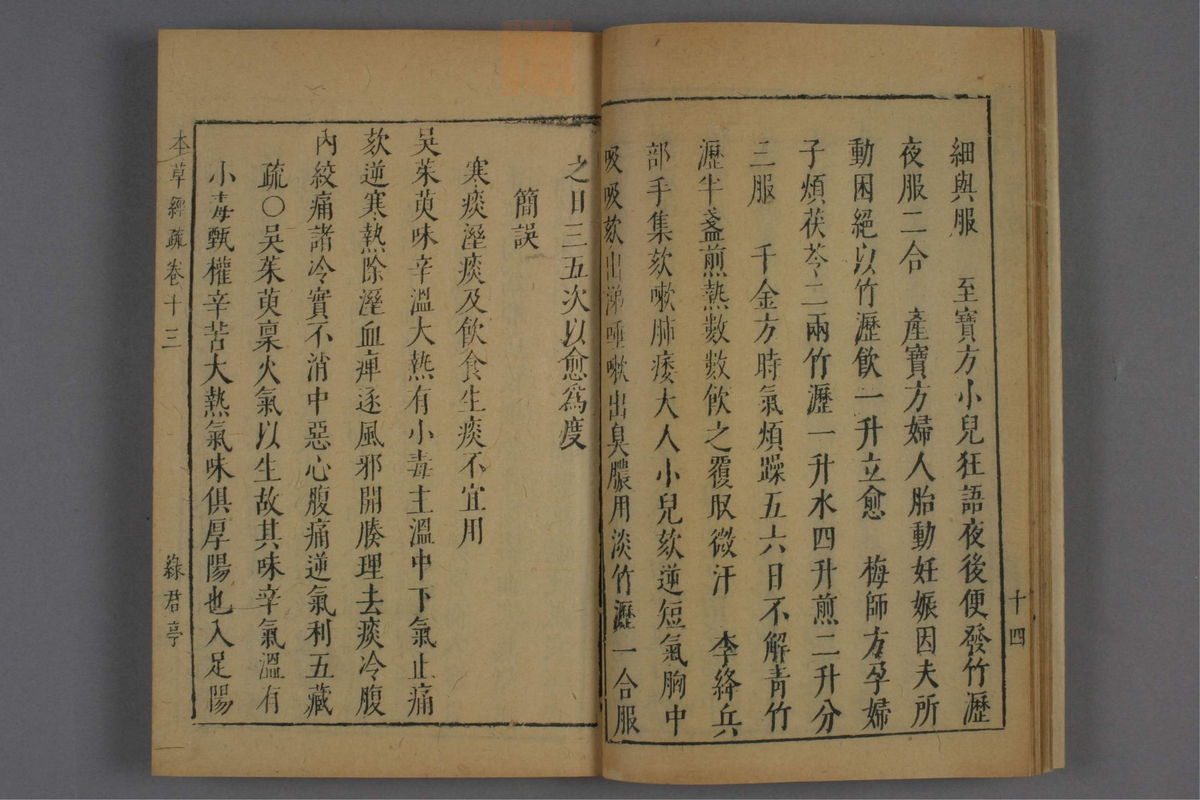 細與服　至寶方小兒狂語夜後便發竹瀝
夜服二合　產寶方婦人胎動妊娠因夫所
動困絕以竹瀝飲一升立愈　梅師方孕婦
子煩茯苓二兩竹瀝一升水四升煎二升分
三服　千金方時氣煩躁五六日不解青竹
瀝半盞煎熱數數飲之覆取微汗　李絳兵
部手集欬嗽肺痿大人小兒欬逆短氣胸中
吸吸欬出涕唾嗽出臭膿用淡竹瀝一合服
十四
之日三五次以愈爲度
簡誤
寒痰溼痰及飲食生痰不宜用
吳茱萸味辛溫大熱有小毒主溫中下氣止痛
欬逆寒熱除溼血痺逐風邪開腠理去痰冷腹
內絞痛諸冷實不消中惡心腹痛逆氣利五藏
疏〇吳茱萸稟火氣以生故其味辛氣溫有
小毒甄權辛苦大熱氣味俱厚陽也入足陽
本草經疏卷十三
綠君亭